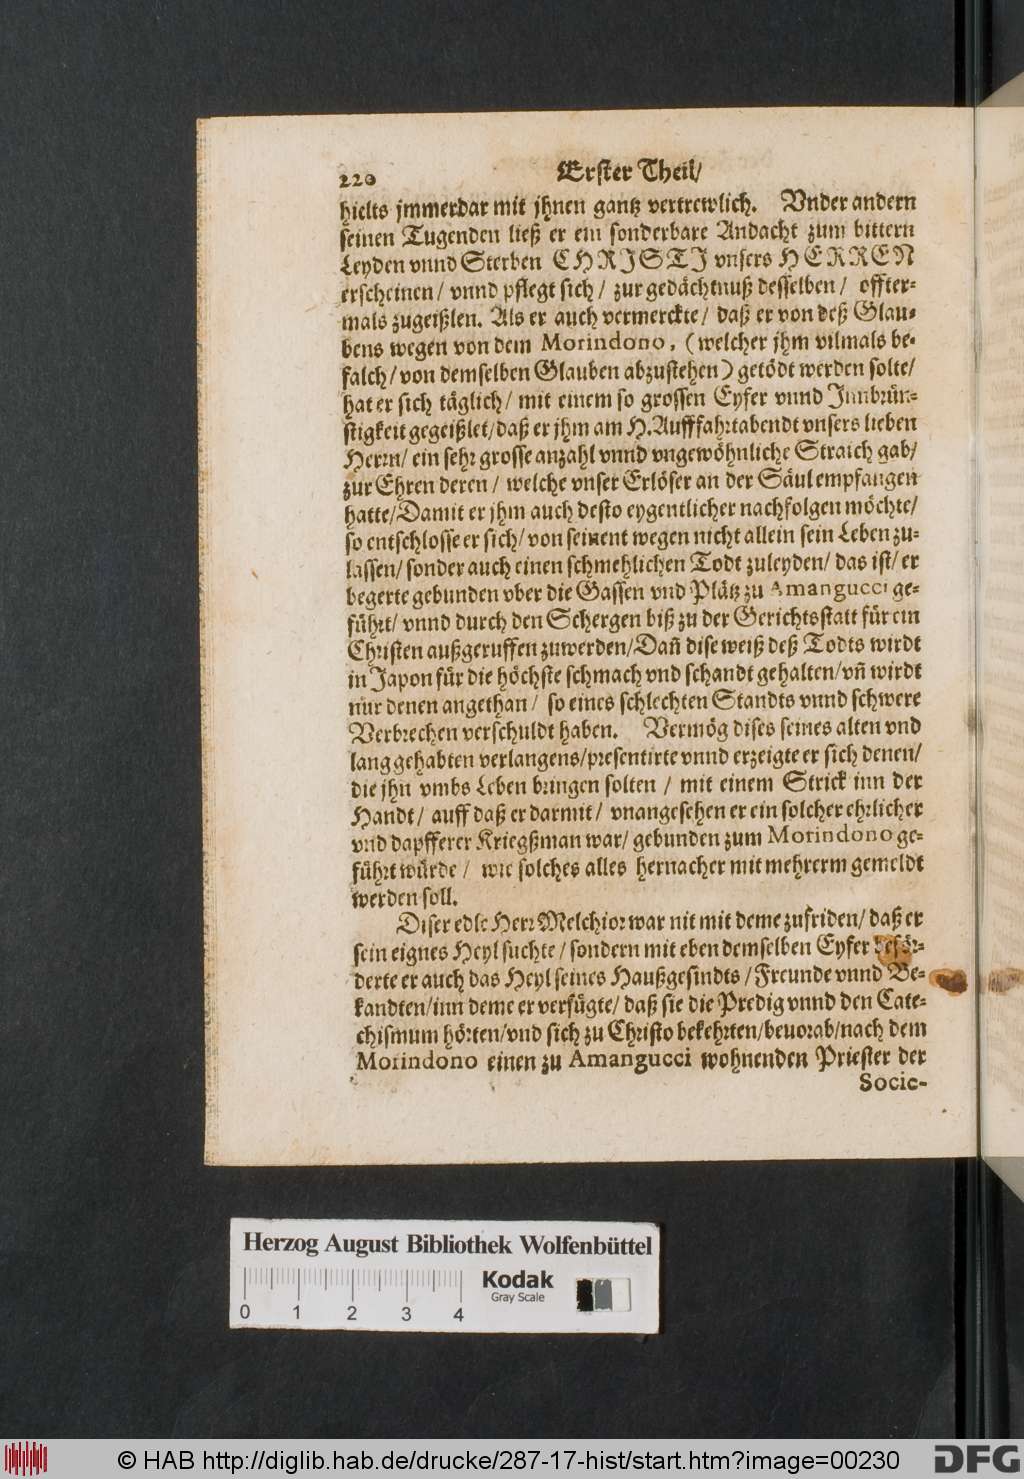 220 Erster Theil/
hielts jmmerdar mit jhnen gantz vertrewlich. Vnder andern
seinen Tugenden ließ er ein sonderbare Andacht zum bittern
Leyden vnnd Sterben CHRJSTJ vnsers HERREN
erscheinen/ vnnd pflegt sich/ zur gedächtnuß desselben/ offter-
mals zugeißlen. Als er auch vermerckte/ daß er von deß Glau-
bens wegen von dem Morindono, (welcher jhm vilmals be-
falch/ von demselben Glauben abzustehen) getödt werden solte/
hat er sich täglich/ mit einem so grossen Eyfer vnnd Jnnbrün-
stigkeit gegeißlet/ daß er jhm am H. Aufffahrtabendt vnsers lieben
Herrn/ ein sehr grosse anzahl vnnd vngewöhnliche Straich gab/
zur Ehren deren/ welche vnser Erlöser an der Säul empfangen
hatte/ Damit er jhm auch desto eygentlicher nachfolgen möchte/
so entschlosse er sich/ von seinent wegen nicht allein sein Leben zu-
lassen/ sonder auch einen schmehlichen Todt zuleyden/ das ist/ er
begerte gebunden vber die Gassen vnd Plätz zu Amangucci ge-
führt/ vnnd durch den Schergen biß zu der Gerichtsstatt für ein
Christen außgeruffen zuwerden/ Dañ dise weiß deß Todts wirdt
in Japon für die höchste schmach vnd schandt gehalten/ vñ wirdt
nur denen angethan/ so eines schlechten Standts vnnd schwere
Verbrechen verschuldt haben. Vermög dises seines alten vnd
lang gehabten verlangens/ presentirte vnnd erzeigte er sich denen/
die jhn vmbs Leben bringen solten/ mit einem Strick inn der
Handt/ auff daß er darmit/ vnangesehen er ein solcher ehrlicher
vnd dapfferer Kriegßman war/ gebunden zum Morindono ge-
führt würde/ wie solches alles hernacher mit mehrerm gemeldt
werden soll.
Diser edle Herr Melchior war nit mit deme zufriden/ daß er
sein eignes Heyl suchte/ sondern mit eben demselben Eyfer beför-
derte er auch das Heyl seines Haußgesindts/ Freunde vnnd Be-
kandten/ inn deme er verfügte/ daß sie die Predig vnnd den Cate-
chismum hörten/ vnd sich zu Christo bekehrten/ beuorab/ nach dem
Morindono einen zu Amangucci wohnenden Priester der
Socie-
Herzog August Bibliothek Wolfenbüttel
Kodak
Gray Scale
0 1 2 3 4
© HAB http://diglib.hab.de/drucke/287-17-hist/start.htm?image=00230
DFG